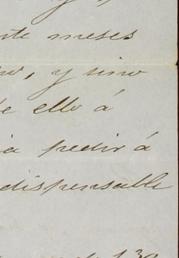 y,
nte meses
o, y sino
de ello á
ia pedir á
dispensable